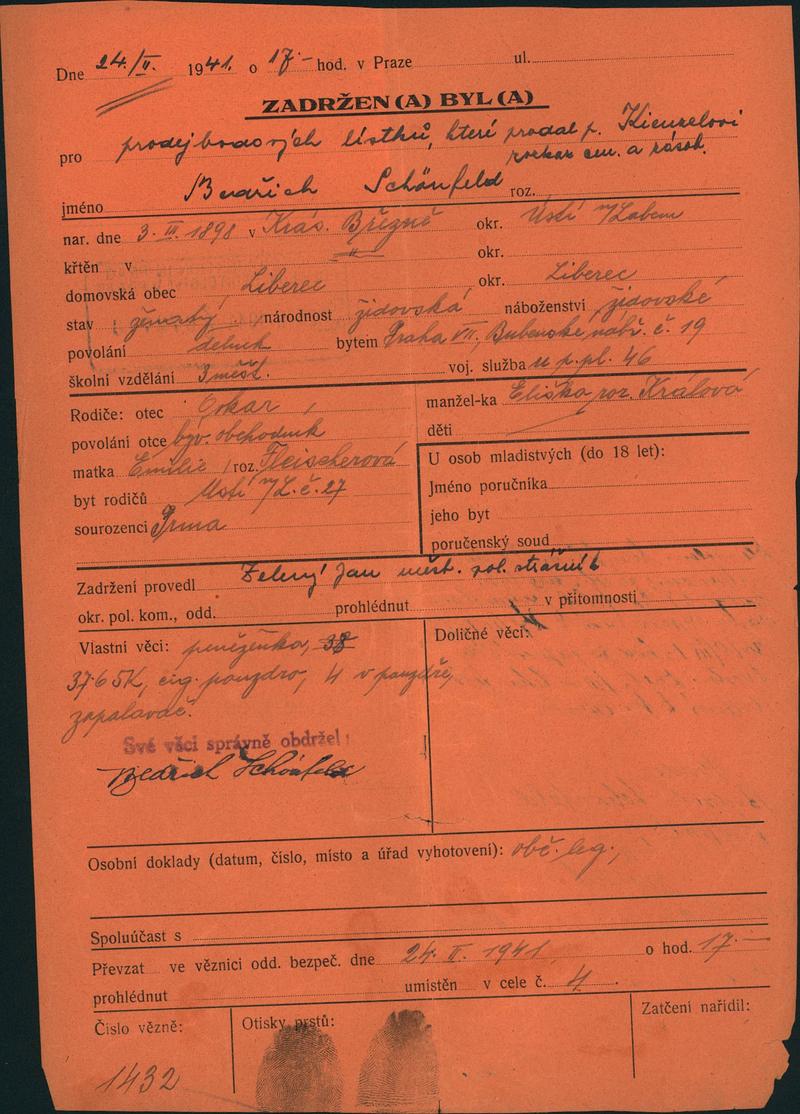 Dne 24./II. 1941. o 17- hod. v Praze ul.
ZADRŽEN(A) BYL(A)
pro prodej bodových lístků, které prodal p. Kienzelovi
a zásob.
jméno Bedřich Schönfeld roz.
nar. dne 3. III. 1898 v Krás. Březně okr. Ústí n/Labem
křtěn v " okr.
domovská obec Liberec okr. Liberec
stav ženatý národnost židovská náboženství židovské
povolání dělník bytem Praha VII., Bubenské nábř. č. 19
školní vzdělání 3 měšť. voj. služba u p. pl. 46
Rodiče: otec Oskar, manžel-ka Eliška roz. Králová
povolání otce býv. obchodník děti
matka Emilie, roz. Fleischerová U osob mladistvých (do 18 let):
byt rodičů Ústí n/L. č. 27 Jméno poručníka
sourozenci Irma jeho byt
poručenský soud
Zadržení provedl Zelený Jan měst. pol. strážník
okr. pol. kom., odd. prohlédnut v přítomnosti
Vlastní věci: peněženka, 38 Doličné věci:
37·65K, cig. pouzdro, 4 v pouzdře,
zapalovač.
Své věci správně obdržel:
Bedřich Schönfeld
Osobní doklady (datum, číslo, místo a úřad vyhotovení): obč. leg.,
Spoluúčast s
Převzat ve věznici odd. bezpeč. dne 24. II. 1941. o hod. 17.-
prohlédnut umístěn v cele č. 4.
Číslo vězně: Otisky prstů: Zatčení nařídil:
1432